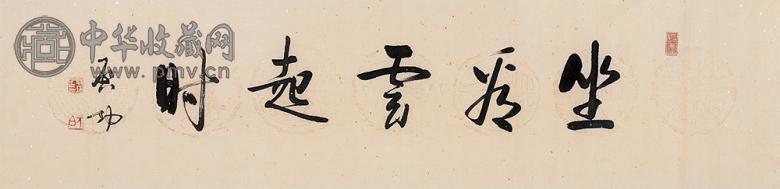 坐看雲起時
啟功
中华收藏网
www.pmv.cn